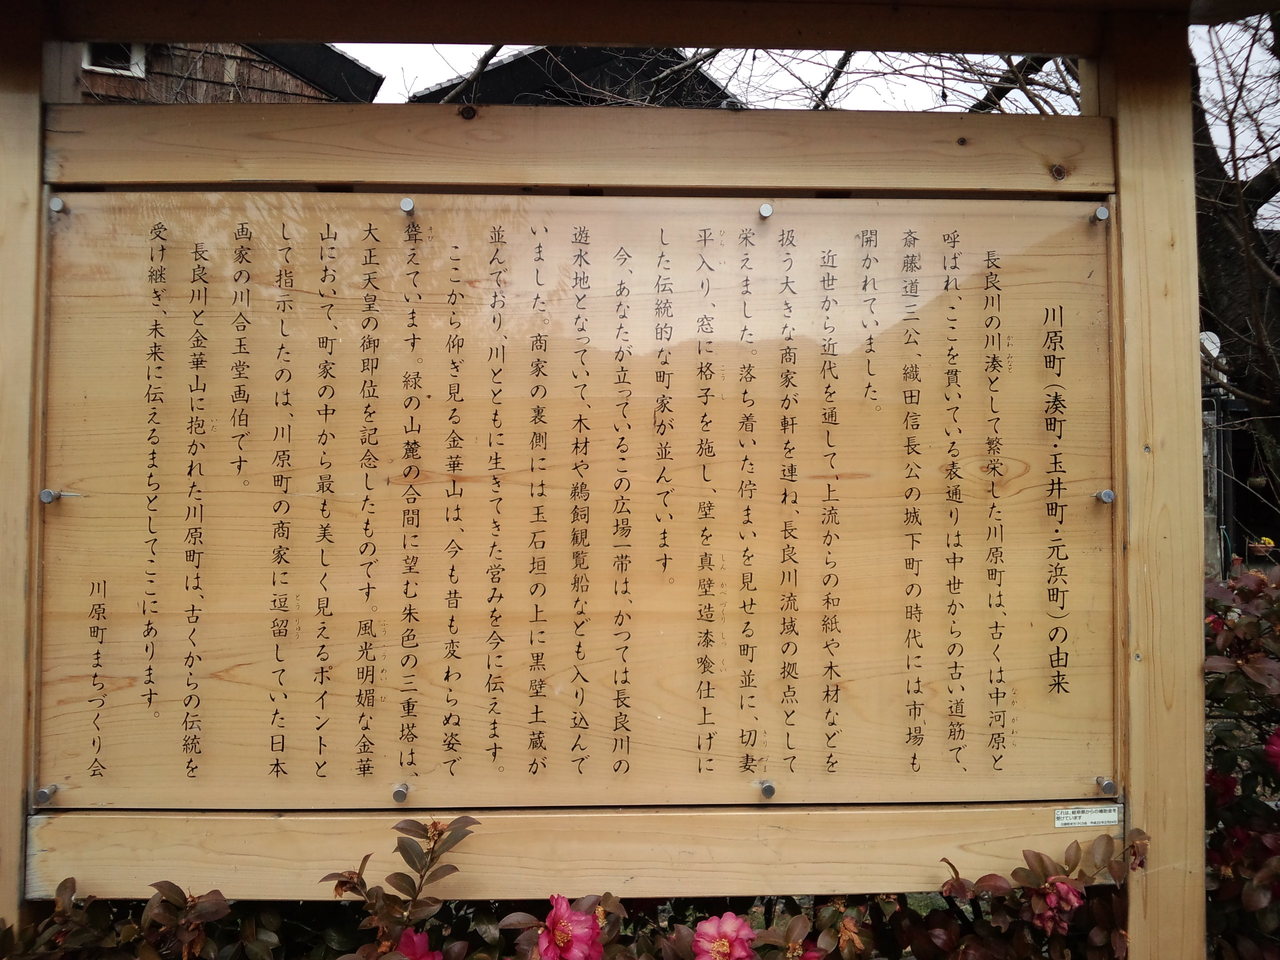 川原町（湊町・玉井町・元浜町）の由来
長良川の川湊として繁栄した川原町は、古くは中河原と
呼ばれ、ここを貫いている表通りは中世からの古い道筋で、
斎藤道三公、織田信長公の城下町の時代には市場も
開かれていました。
近世から近代を通して、上流からの和紙や木材などを
扱う大きな商家が軒を連ね、長良川流域の拠点として
栄えました。落ち着いた佇まいを見せる町並に、切妻
平入り、窓に格子を施し、壁を真壁造漆喰仕上げに
した伝統的な町家が並んでいます。
今、あなたが立っているこの広場一帯は、かつては長良川の
遊水地となっていて、木材や鵜飼観覧船なども入り込んで
いました。商家の裏側には玉石垣の上に黒壁土蔵が
並んでおり、川とともに生きてきた営みを今に伝えます。
ここから仰ぎ見る金華山は、今も昔も変わらぬ姿で
聳えています。緑の山麓の合間に望む朱色の三重塔は、
大正天皇の御即位を記念したものです。風光明媚な金華
山において、町家の中から最も美しく見えるポイントと
して指示したのは、川原町の商家に逗留していた日本
画家の川合玉堂画伯です。
長良川と金華山に抱かれた川原町は、古くからの伝統を
受け継ぎ、未来に伝えるまちとしてここにあります。
川原町まちづくり会
これは、岐阜県からの補助金を
受けています